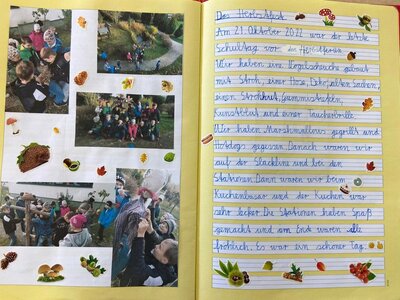 Das Herbstfest
Am 21. Oktober 2022 war der letzte
Schultag vor den Herbstferien.
Wir haben eine Vogelscheuche gebaut
mit Stroh, einer Hose, Deko, alten Sachen,
einen Strohhut, Gummistiefeln,
Kunstblut und einer Taucherbrille.
Wir haben Marshmallows gegrillt und
Hotdogs gegessen. Danach waren wir
auf der Slackline und bei den
Stationen. Dann waren wir beim
Kuchenbasar und der Kuchen war
sehr lecker. Die Stationen haben Spaß
gemacht und am Ende waren alle
fröhlich. Es war ein schöner Tag.